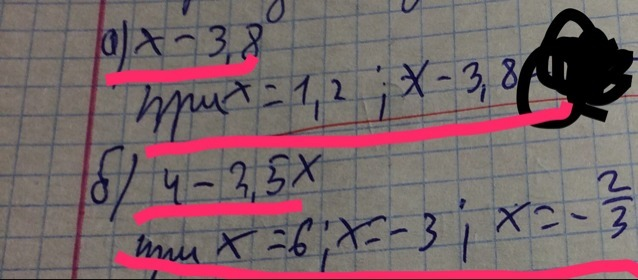 а) x - 3,8
при x = 1,2 ; x - 3,8
б) 4 - 3,5x
при x = 6; x = -3 ; x = - 2/3